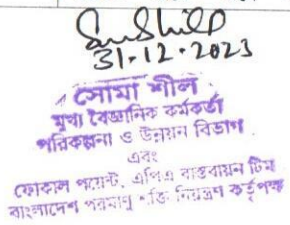 31.12.2023
সোমা শীল
মুখ্য বৈজ্ঞানিক কর্মকর্তা
পরিকল্পনা ও উন্নয়ন বিভাগ
এবং
ফোকাল পয়েন্ট, এপিএ বাস্তবায়ন টিম
বাংলাদেশ পরমাণু শক্তি নিয়ন্ত্রণ কর্তৃপক্ষ